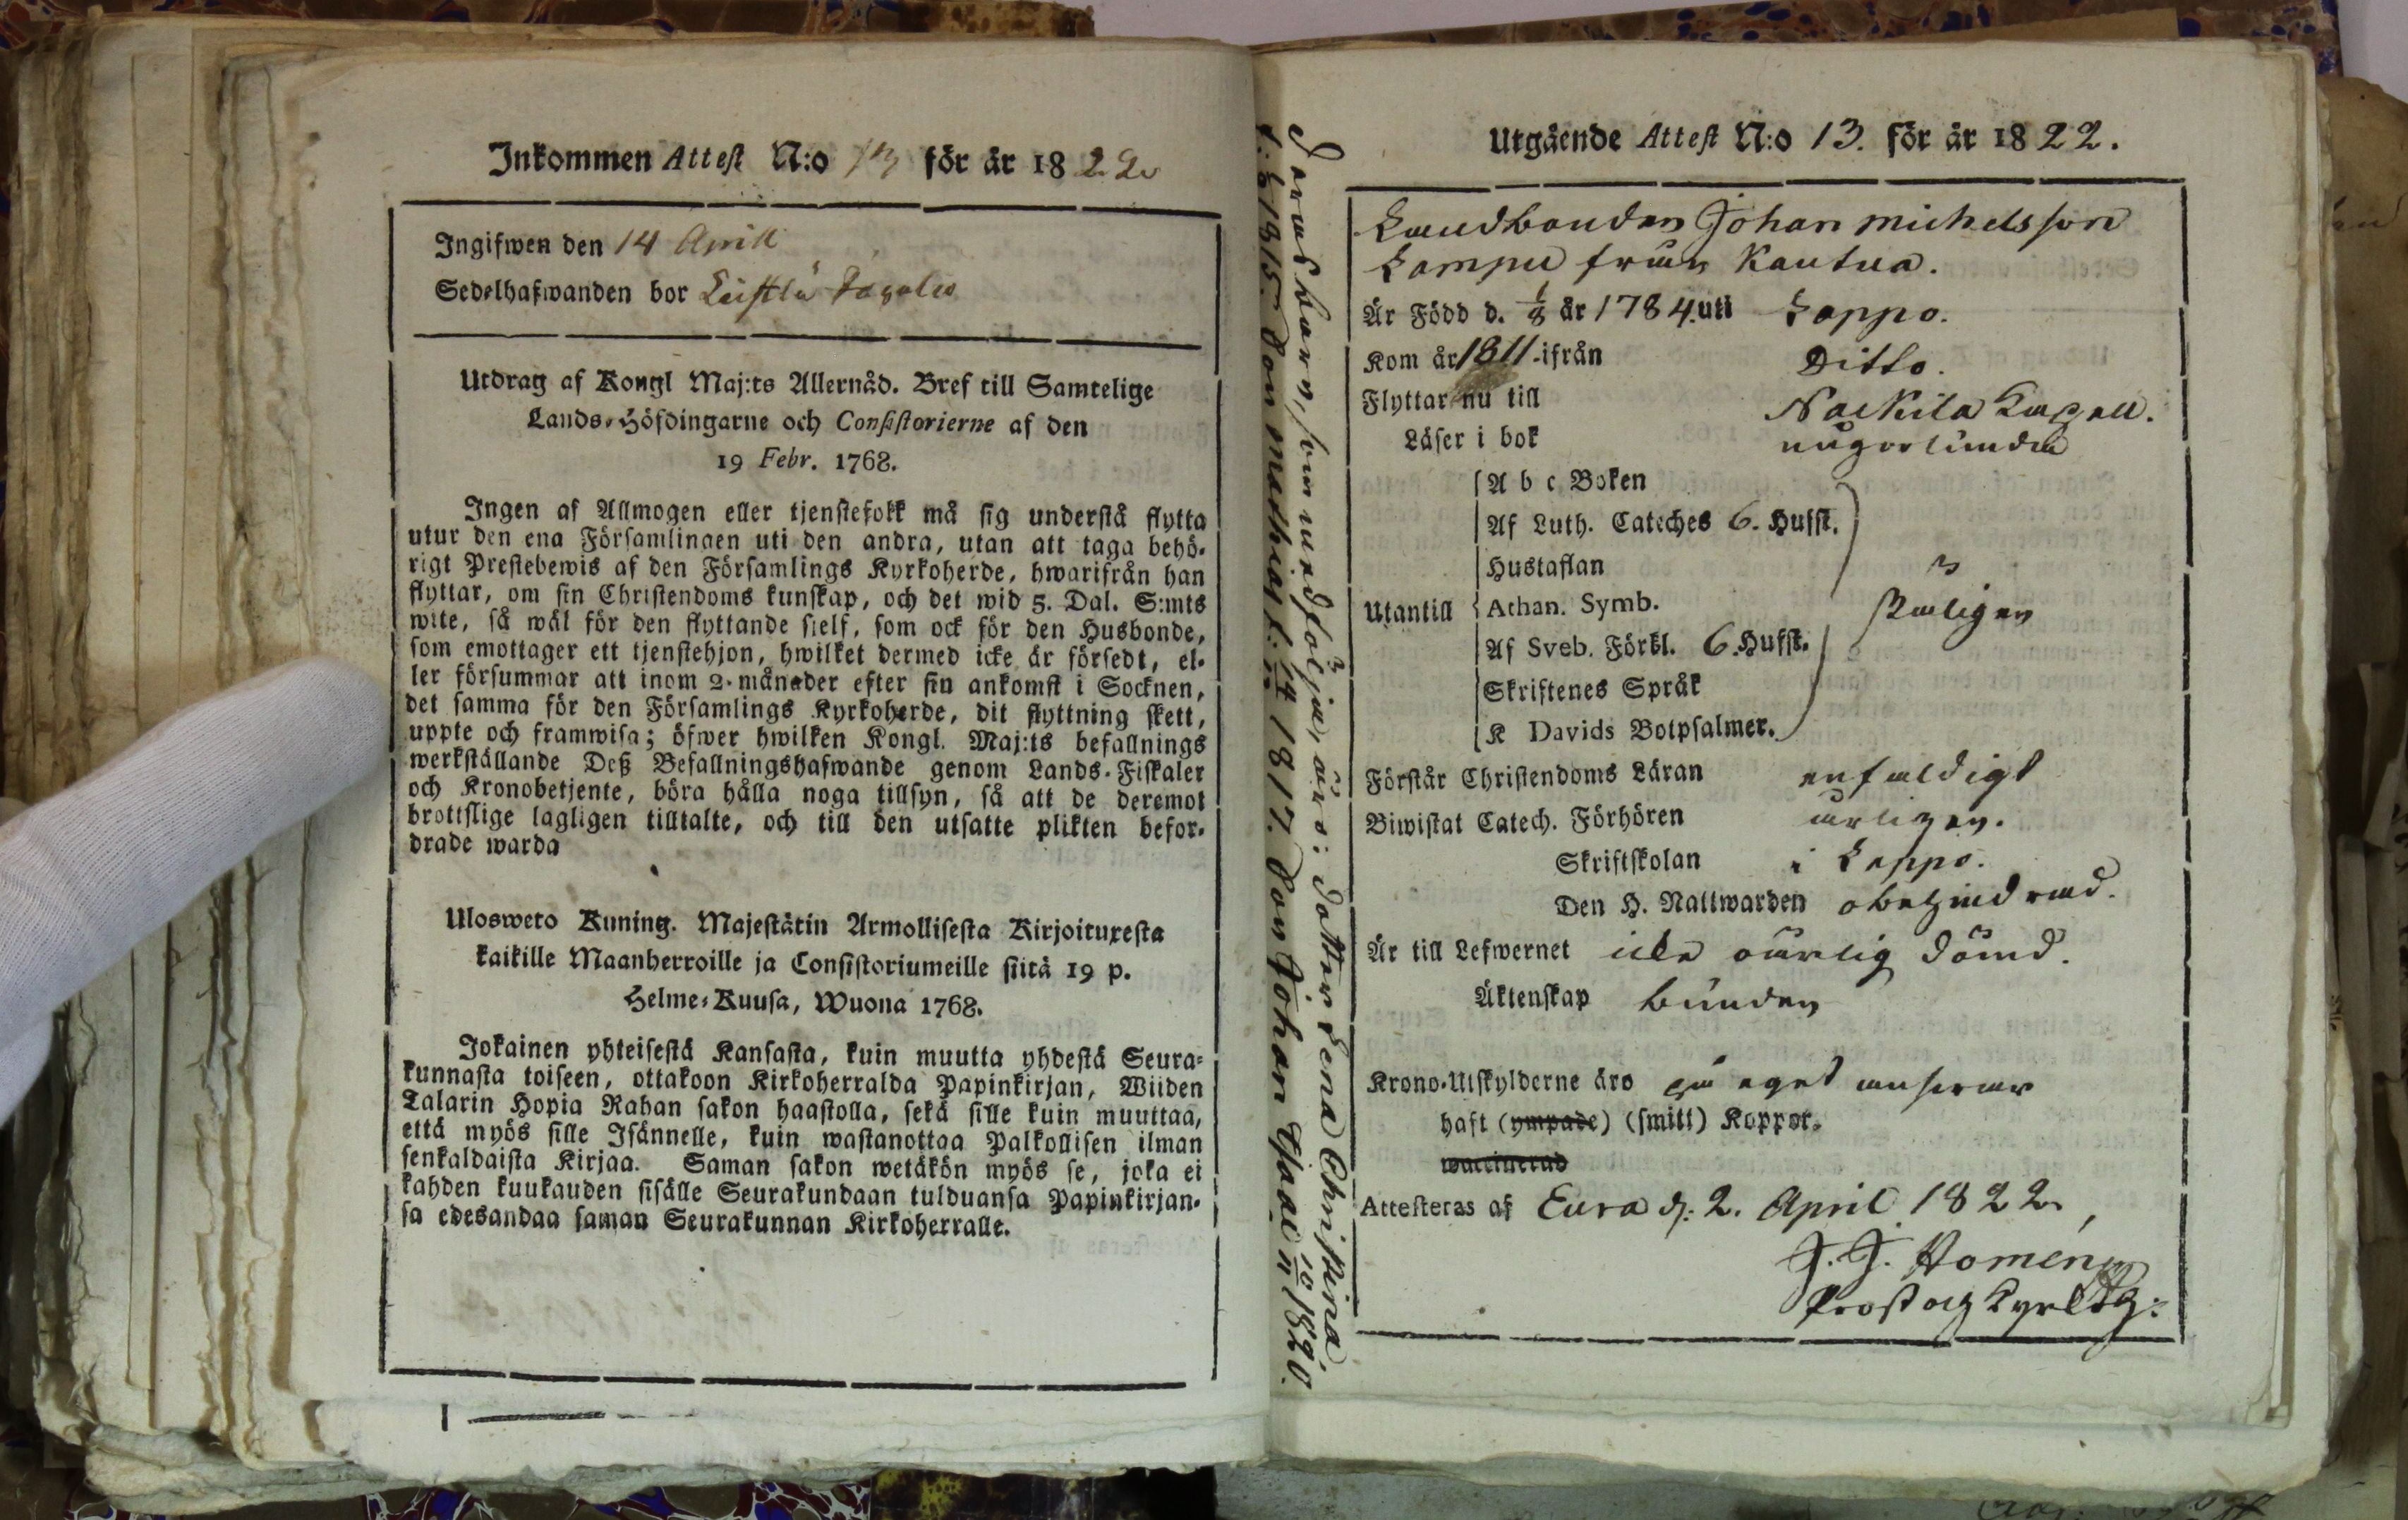 Inkommen Attest N:o 13 för år 1822
Ingifwen den 14 Aprill
Sedelhafwanden bor Leistlä
Utdrag af Kongl Maj:ts Allernåd. Bref till Samtelige
Lands-Höfdingarne och Consistorierne af den
19 Febr. 1768.
Ingen af Allmogen eller tjenstefolk må sig understå flytta
utur den ena Församlingen uti den andra, utan att taga behö-
rigt Prestebewis af den Församlings Kyrkoherde, hwarifrån han
flyttar, om sin Christendoms kunskap, och det wid 5. Dal. S:mts
wite, så wäl för den flyttande sielf, som ock för den Husbonde,
som emottager ett tjenstehjon, hwilket dermed icke är försedt, el-
ler försummar att inom 2. månader efter sin ankomst i Socknen,
det samma för den Församlings Kyrkoherde, dit flyttning skett,
uppte och framwisa; öfwer hwilken Kongl. Maj:ts befallnings
werkställande Deß Befallningshafwande genom Lands-Fiskaler
och Kronobetjente, böra hålla noga tillsyn, så att de deremot
brottslige lagligen tilltalte, och till den utsatte plikten befor-
drade warda
Ulosweto Kuning. Majestätin Armollisesta Kirjoituxesta
kaikille Maanherroille ja Consistoriumeille siitä 19 p.
Helme-Kuusa, Wuona 1768.
Jokainen yhteisestä Kansasta, kuin muutta yhdestä Seura-
kunnasta toiseen, ottakoon Kirkoherralda Papinkirjan, Wiiden
Talarin Hopia Rahan sakon haastolla, sekä sille kuin muuttaa,
että myös sille Isännelle, kuin wastanottaa Palkollisen ilman
senkaldaista Kirjaa. Saman sakon wetäkön myös se, joka ei
kahden kuukauden sisälle Seurakundaan tulduansa Papinkirjan-
sa edesandaa saman Seurakunnan Kirkoherralle.
Deras barn, som medfölja, äro: Dotter Lena Christina
f: 1/8 1815. Son Mathias f: 1817. Son Johan Isaac 10/11 1820.
Utgående Attest N:o 13. för år 1822.
Landbonden Johan Michelsson
Lampu från Kautua.
Är Född d. 1/8 år 1784 uti Lappo.
Kom år 1811 ifrån Ditto.
Flyttar nu till Nackila Capell.
Läser i bok någorlunda
A b c Boken
Af Luth. Cateches 6. Hufst.
Hustaflan
Utantill Athan. Symb. skäligen
Af Sveb. Förkl. 6. Hufst.
Skriftenes Språk
K Davids Botpsalmer.
Förstår Christendoms Läran enfaldigt
Biwistat Catech. Förhören årligen.
Skriftskolan i Lappo.
Den H. Nattwarden obehindrad.
Är till Lefwernet icke oärlig dömd.
Äktenskap bunden
Krono-Utskylderne äro på eget answar
haft (ympade) (smitt) Koppor.
waccinerad
Attesteras af Eura d: 2. April 1822,
J. J. Homén
Prost och Kyrkoh: